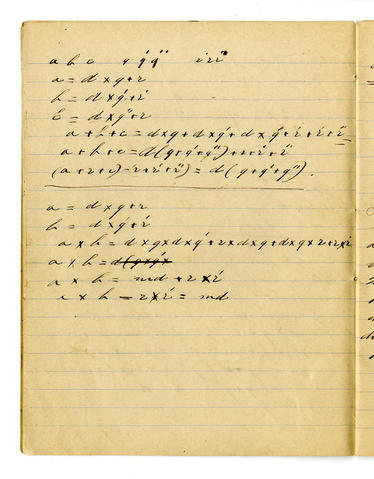 a b c q q' q" r r' r"
a = d × q + r
b = d × q' + r'
c = d × q" + r
a + b + c = d × q + d × q' + d × q" + r + r' + r"
a + b + c = d (q + q' + q") + r + r' + r"
(a + b + c) - r + r' + r") = d (q + q' + q").
a = d × q + r
b = d × q' + r'
a × b = d × q × d × q' + r × d × q + d × q × r + r × r'
a × b = d (q × q' ×
a × b = md + r × r'
a × b - r × r' = md